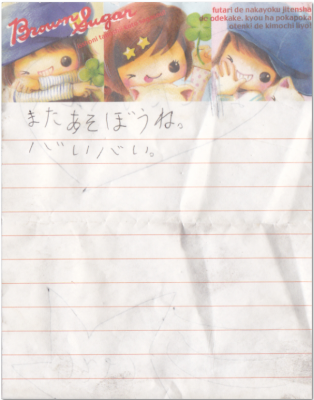 Brown Sugar
futari de nakayoku jitensha
de odekake. kyou ha pokapoka
otenki de kimochi iiyo!!
またあそぼうね。
バいバい。